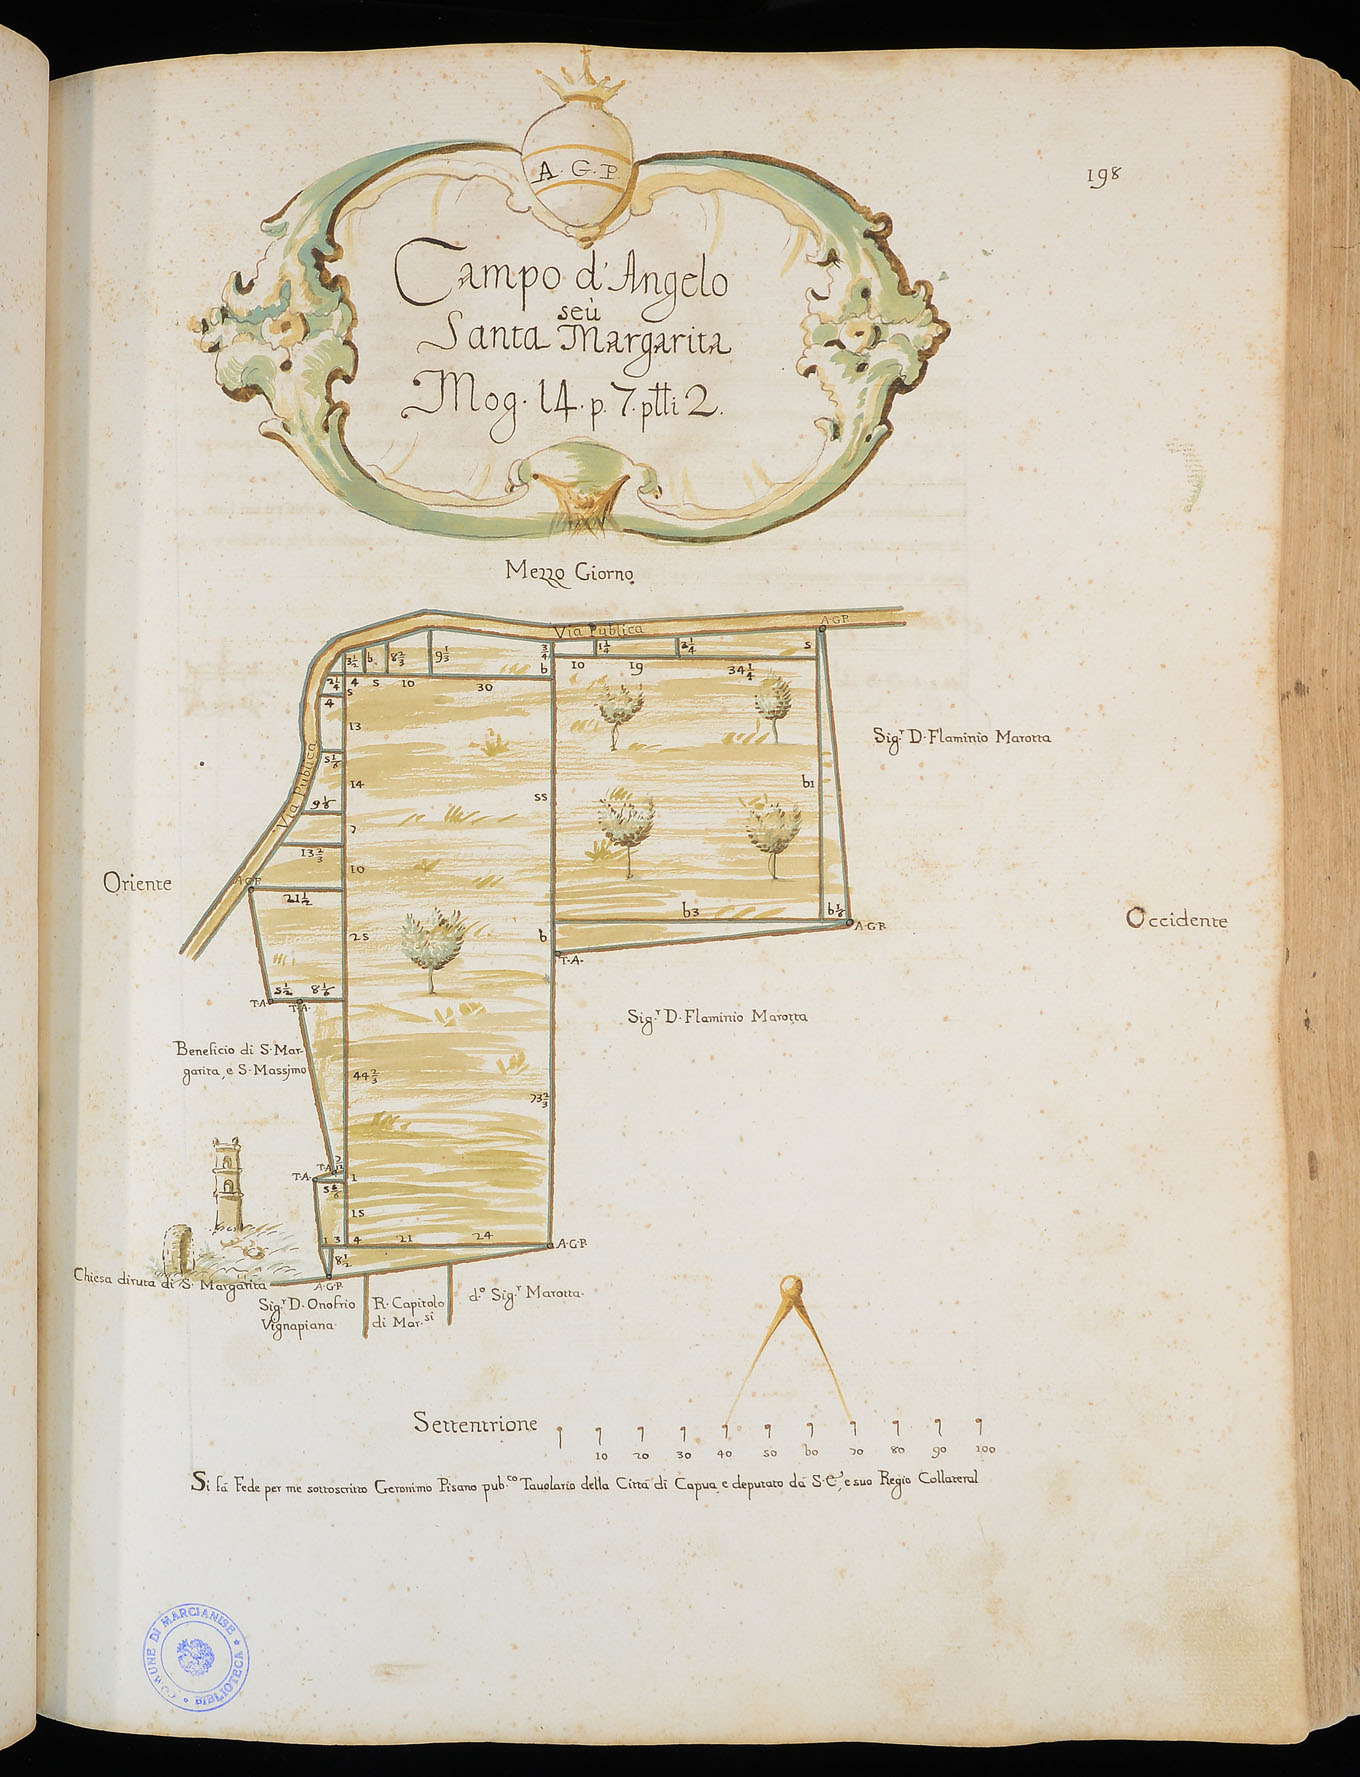 198
A. G. P.
Campo d'Angelo
seù
Santa Margarita
Mog. 14. p. 7. ptti 2.
Mezzo Giorno
Via Publica
A.G.P.
3½ b 8⅔ 9⅓ ¾ 1¼ 3¼ s
2¼ 4 s 10 30 b 10 19 34¼
s
4
13
Sig.r D. Flaminio Marotta
Via Publica
s⅙ 14 ss b1
9⅙
7
13⅔ 10
Oriente
A.G.P.
21½ b3 b⅙
Occidente
A.G.P.
2s b
T.A.
s½ 8⅙
T.A. T.A.
Sig.r D. Flaminio Marotta
Beneficio di S. Mar-
garita, e S. Massimo
44⅔ 73⅔
T.A.
T.A. 1
s⅚
1s
1 3 4 21 24 A.G.P.
8½
Chiesa diruta di S. Margarita
A.G.P.
Sig.r D. Onofrio
Vignapiana
R. Capitolo
di Mar.si
d.o Sig.r Marotta.
Settentrione
10 20 30 40 s0 b0 70 80 90 100
Si fà Fede per me sottoscritto Geronimo Pisano pub.co Tauolario della Città di Capua, e deputato dà S.E., e suo Regio Collateral
COMUNE DI MARCIANISE
BIBLIOTECA